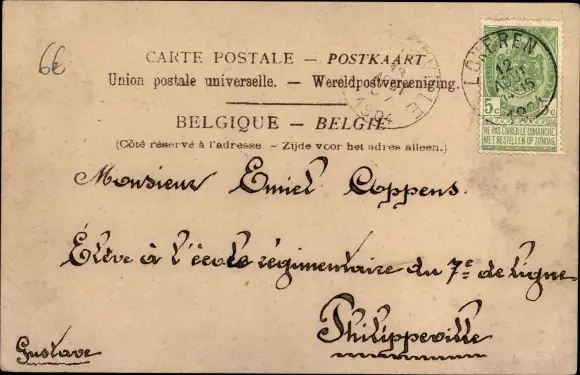 6e
CARTE POSTALE — POSTKAART
Union postale universelle. — Wereldpostvereeniging.
BELGIQUE — BELGIE
(Côté réservé à l'adresse. - Zijde voor het adres alleen.)
LOKEREN
12
AOUT
15
1904
5c
NE PAS LIVRER LE DIMANCHE
NIET BESTELLEN OP ZONDAG
13
1904
Monsieur Emiel Coppens.
Élève à l'école régimentaire du 7e de ligne
Philippeville
Gustave